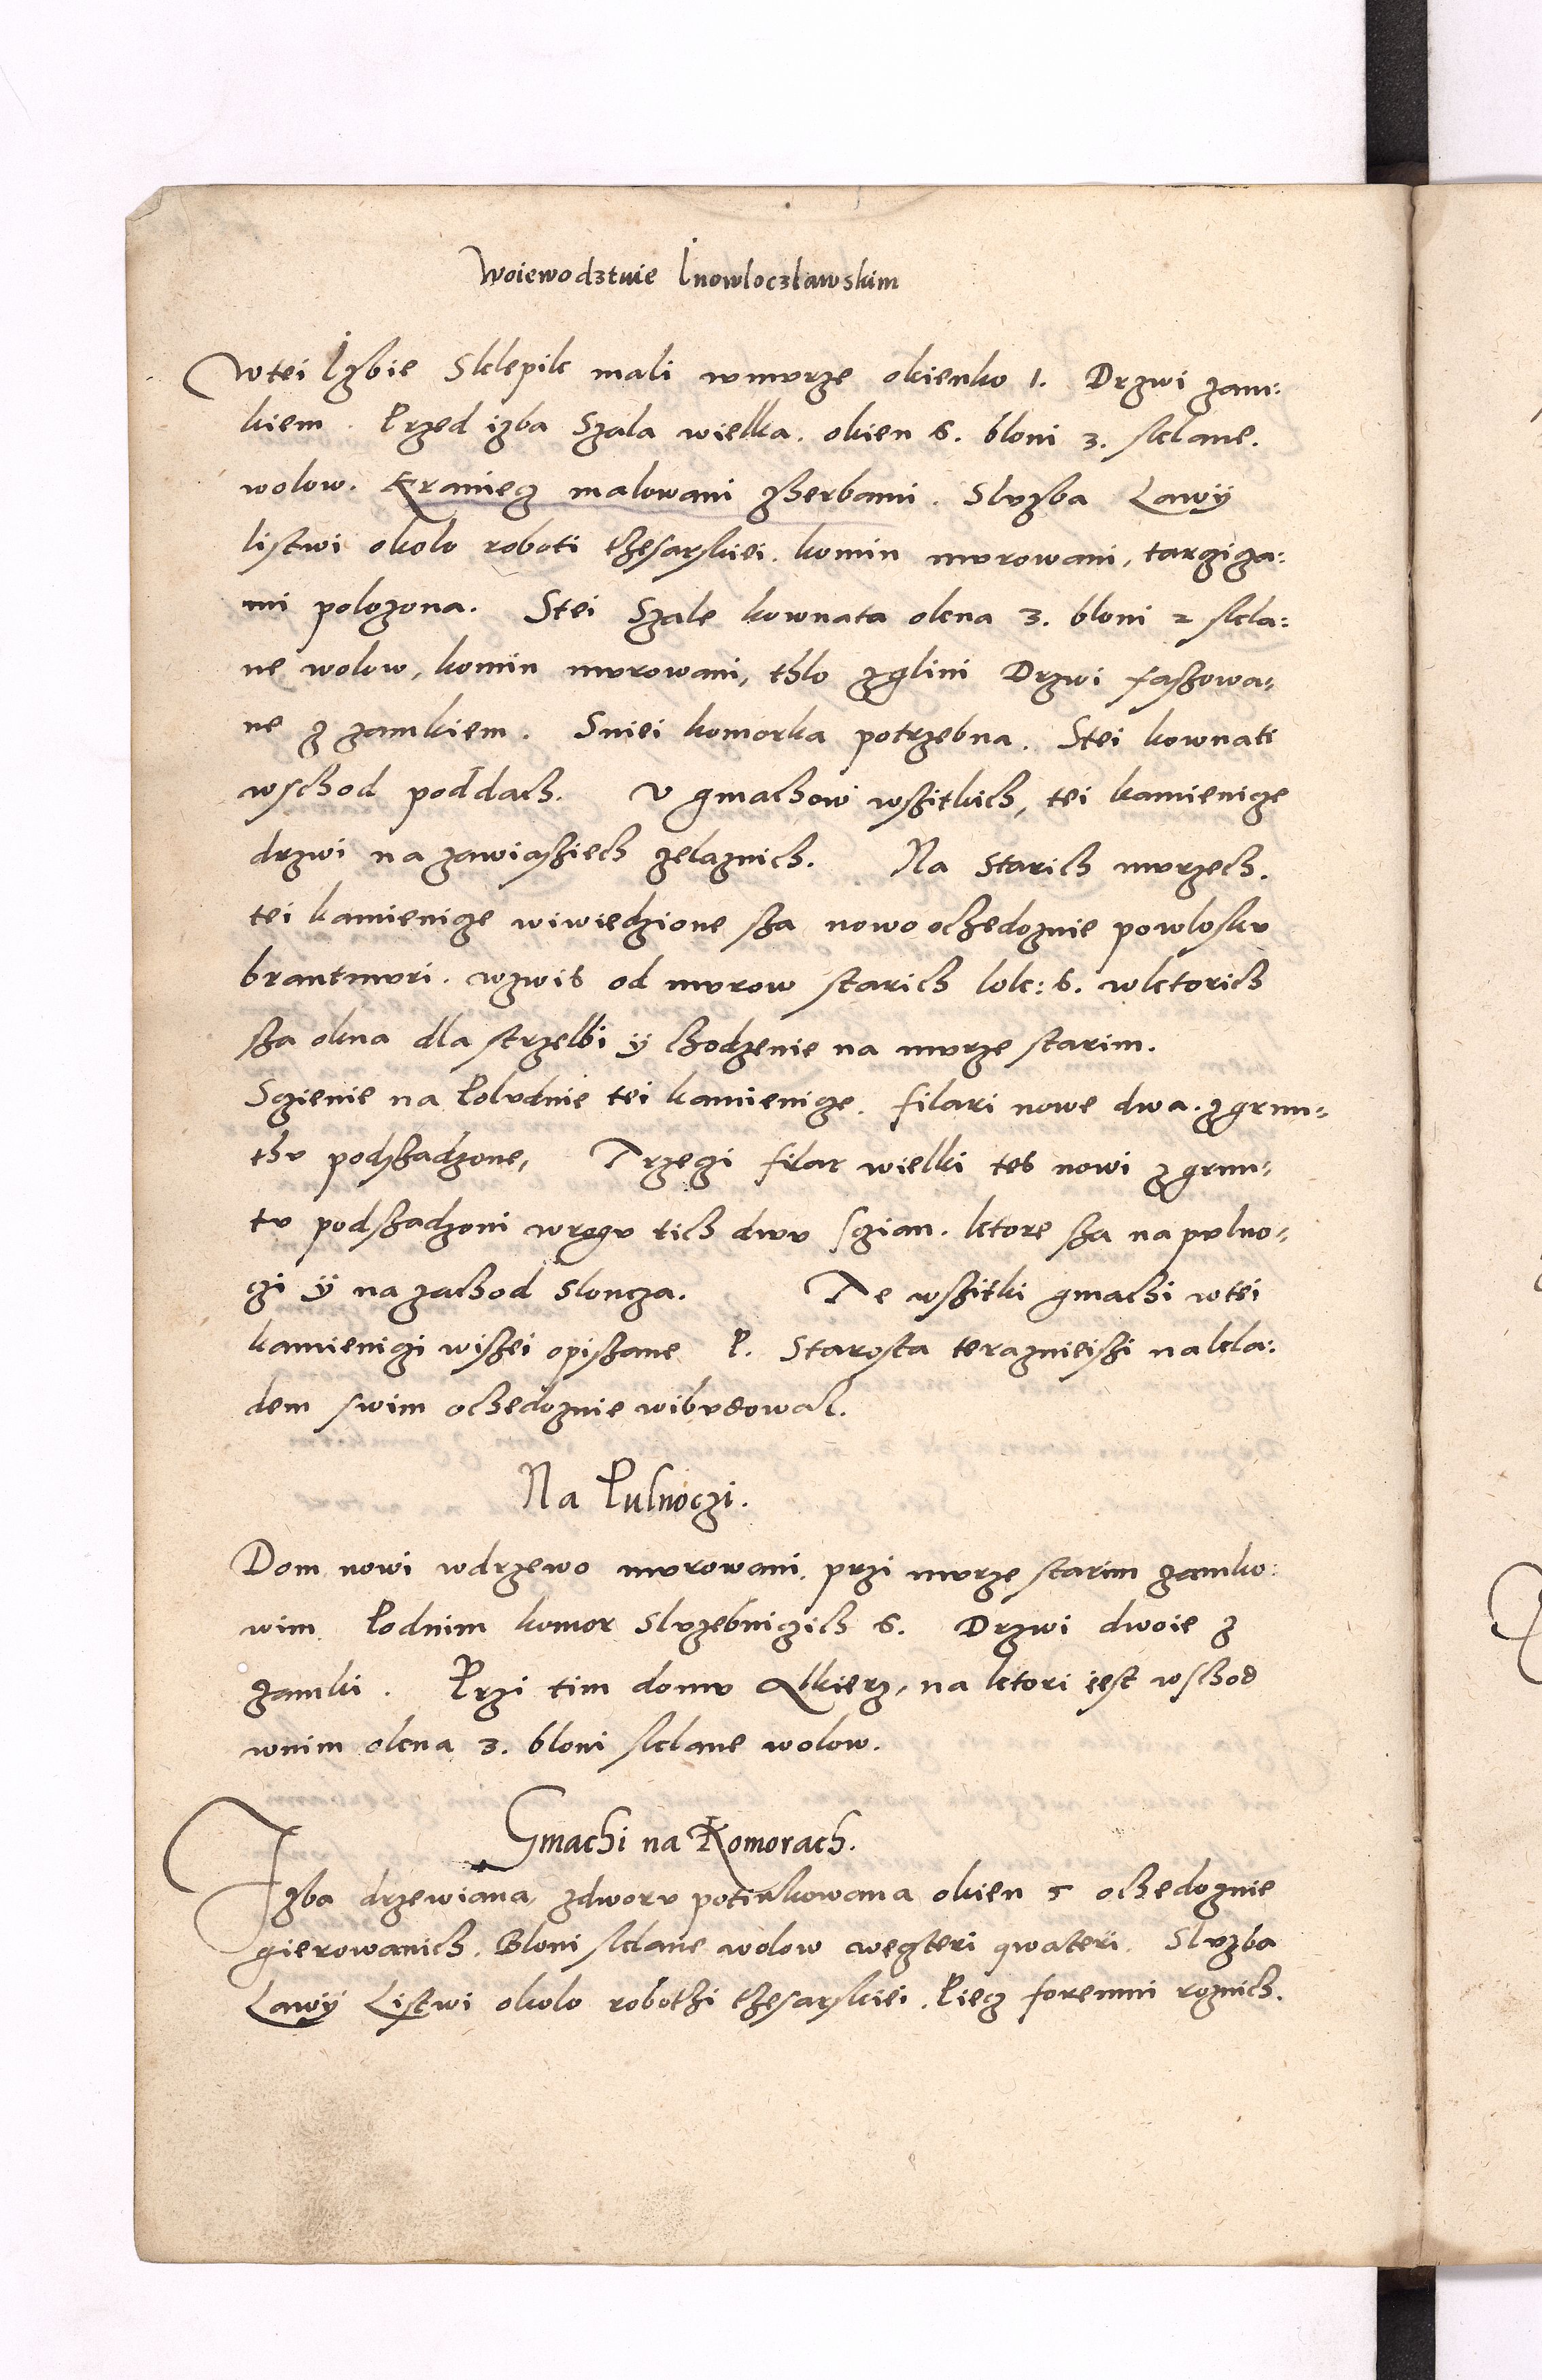 Woiewodztwie Inowloczlawskim
Wtei Izbie Sklepik mali wmvrze okienko 1. Drzwi zam:
kiem. Przed izba Szala wielka. okien 6. bloni 3. sklane.
wolow. Kraniecz malowani zherbami. Slvzba Lawÿ
listwi okolo roboti thesarskiei. komin mvrowani, targicza:
mi polozona. Stei Szale kownata okna 3. bloni 2 skla:
ne wolow, komin mvrowani, thlo zglini Drzwi faszowa=
ne z zamkiem. Sniei komorka potrzebna. Stei kownati
wschod poddach. V gmachow wszitkich, tei kamienicze
drzwi na zawiasziech zelaznich. Na Starich mvrzech.
tei kamienicze wiwiedzione sza nowo ochedoznie powlosku
brantmvri. wzwis od mvrow starich lok: 6. wktorich
sza okna dla strzelbi ÿ chodzenie na mvrze starim.
Sczienie na Polvdnie tei kamienicze. filari nowe dwa. zgrun=
thv podszadzone, Trzeczi filar wielki tes nowi zgrun=
tv podszadzoni wrogv tich dwv sczian. ktore sza na pvlno=
czi ÿ na zachod Sloncza. Te wszitki gmachi wtei
kamieniczi wiszei opiszane P. Starosta teraznieiszi nakla:
dem swim ochedoznie wibvdowal.
Na Pulnoczi.
Dom nowi wdrzewo mvrowani. przi mvrze starim zamko:
wim. Podnim komor Slvzebniczich 6. Drzwi dwoie z
zamki. Przi tim domv Alkierz, na ktori iest wschod
wnim okna 3. bloni sklane wolow.
Gmachi na Komorach.
Izba drzewiana, zdworv potinkowana okien 5 ochedoznie
gierowanich. Bloni sklane wolow wegteri qwateri. Slvzba
Lawÿ Listwi okolo robothi thesarskiei. Piecz foremni roznich.